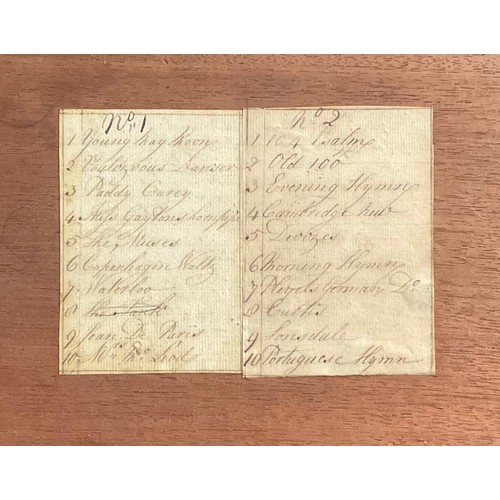 No 1
1 Young May Moon
2 Voulezvous Danser
3 Paddy Carey
4 Miss Gaytons hornpipe
5 The Muses
6 Copenhagen Waltz
7 Waterloo
8 The
9 Jean De Paris
10 Mc Leod
No 2
1 104 Psalm
2 Old 100
3 Evening Hymn
4 Cambridge New
5 Devizes
6 Morning Hymn
7 Pleyels German Do
8 Curtis
9 Lonsdale
10 Portuguese Hymn